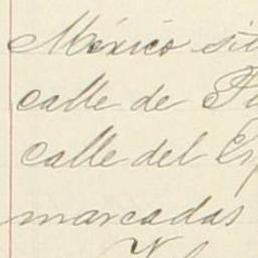 México sit
calle de
calle del Es
marcadas